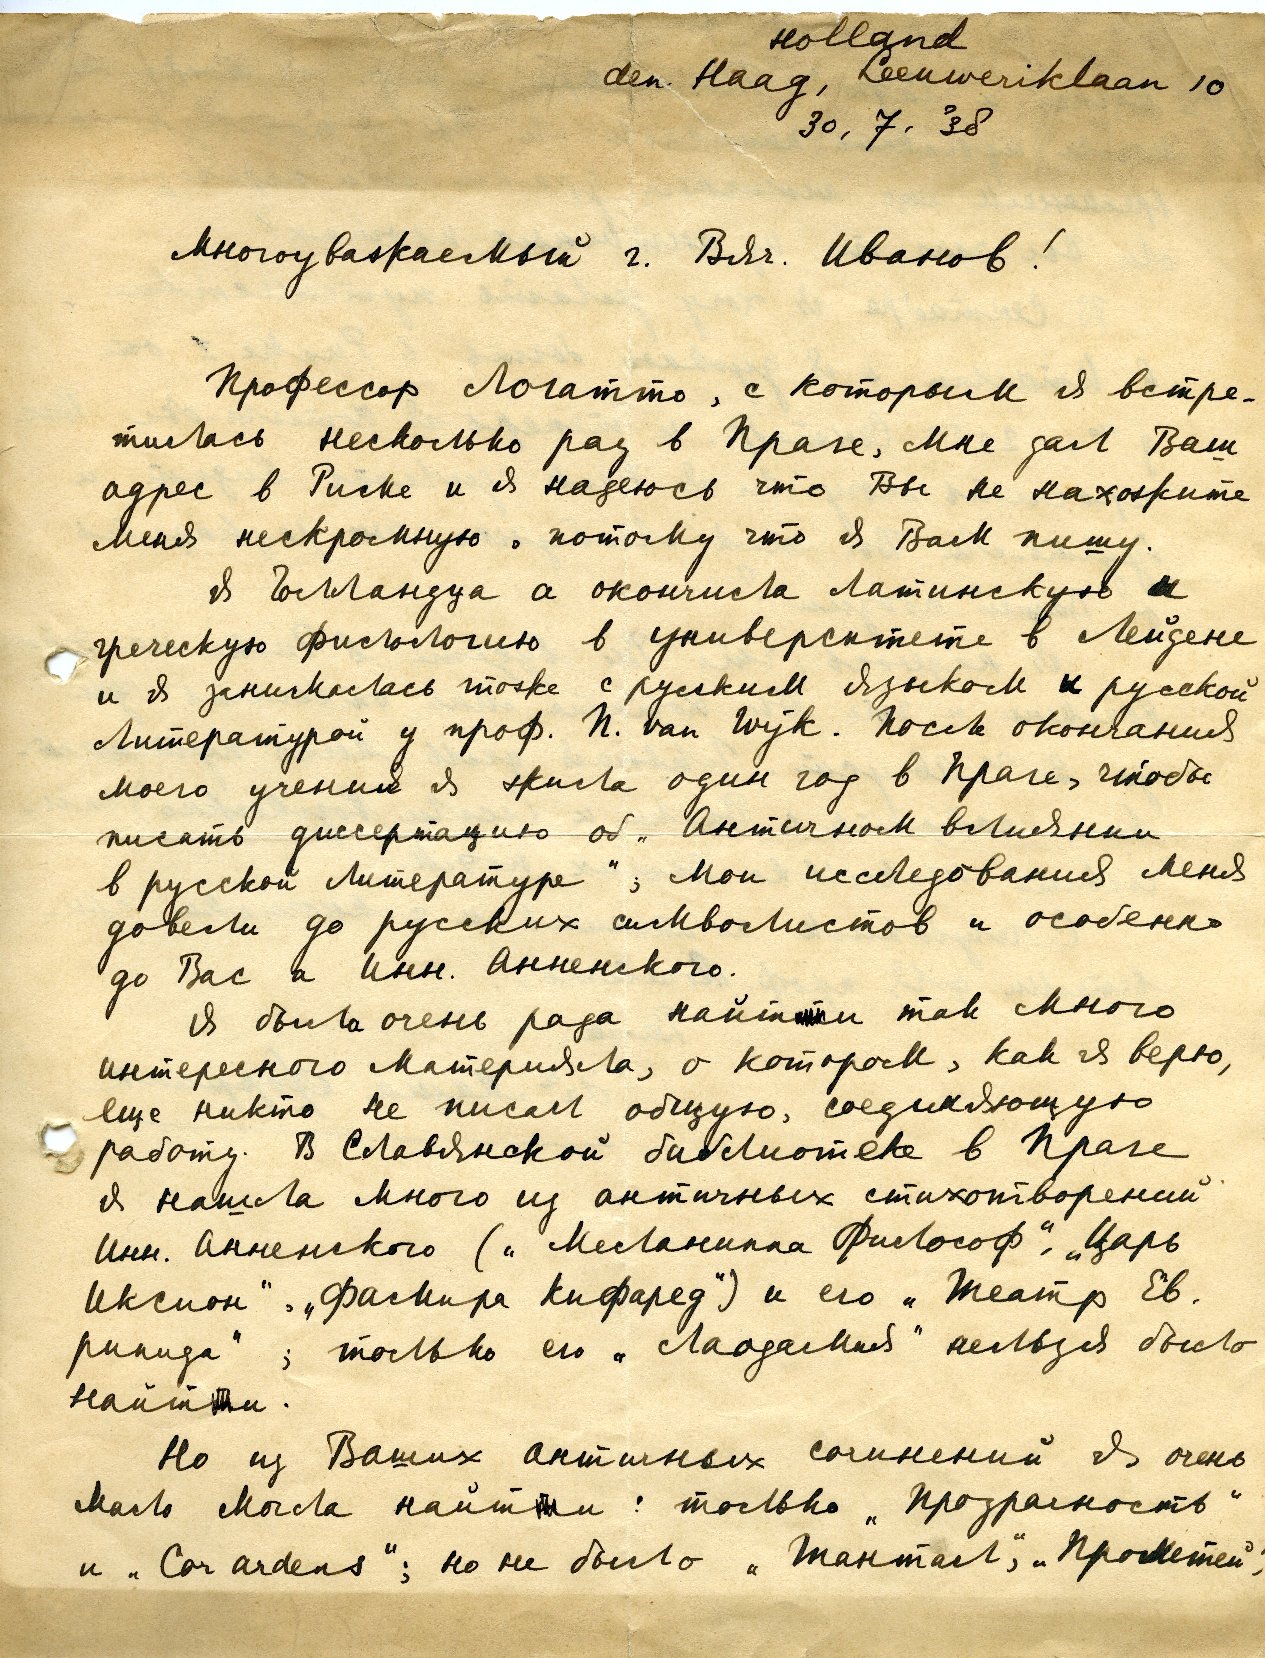 Holland
den. Haag, Leeuweriklaan 10
30. 7. '38
Многоуважаемый г. Вяч. Иванов!
Профессор Логатто, с которым я встре-
тилась несколько раз в Праге, мне дал Ваш
адрес в Риме и я надеюсь что Вы не нахожите
меня нескромную, потому что я Вам пишу.
Я Голландца а окончила латинскую и
греческую филологию в университете в Лейдене
и я занималась тоже с русским языком и русской
литературой у проф. N. van Wijk. После окончания
моего учения я жила один год в Праге, чтобы
писать диссертацию об „Античном влиянии
в русской литературе"; мои исследования меня
довели до русских символистов и особенно
до Вас и Инн. Анненского.
Я была очень рада найти так много
интересного материяла, о котором, как я верю,
еще никто не писал общую, соединяющую
работу. В Славянской библиотеке в Праге
я нашла много из античных стихотворений
Инн. Анненского („Меланиппа Философ", „Царь
Иксион", „Фамира Кифаред") и его „Театр Ев.
рипида"; только его „Лаодамия" нельзя было
найти.
Но из Ваших античных сочинений я очень
мало могла найти: только „Прозрачность"
и „Cor ardens"; но не было „Тантал", „Прометей",